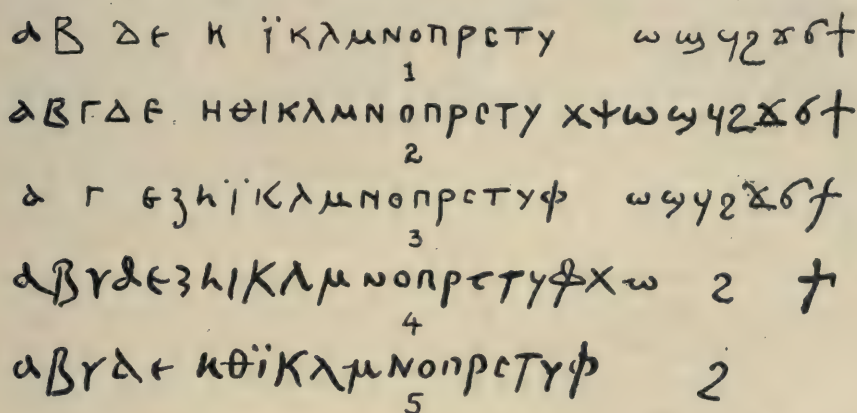 ⲁ ⲃ ⲇ ⲉ ⲏ ⲓ̈ ⲕ ⲗ ⲙ ⲛ ⲟ ⲡ ⲣ ⲥ ⲧ ⲩ ⲱ ϣ ϥ ϩ ϫ ϭ ϯ
1
ⲁ ⲃ ⲅ ⲇ ⲉ ⲏ ⲑ ⲓ ⲕ ⲗ ⲙ ⲛ ⲟ ⲡ ⲣ ⲥ ⲧ ⲩ ⲭ ⲯ ⲱ ϣ ϥ ϩ ϫ ϭ ϯ
2
ⲁ ⲅ ⲉ ⲍ ⲏ ⲓ̈ ⲕ ⲗ ⲙ ⲛ ⲟ ⲡ ⲣ ⲥ ⲧ ⲩ ⲫ ⲱ ϣ ϥ ϩ ϫ ϭ ϯ
3
ⲁ ⲃ ⲅ ⲇ ⲉ ⲍ ⲏ ⲓ ⲕ ⲗ ⲙ ⲛ ⲟ ⲡ ⲣ ⲥ ⲧ ⲩ ⲫ ⲭ ⲱ ϩ ϯ
4
ⲁ ⲃ ⲅ ⲇ ⲉ ⲏ ⲑ ⲓ̈ ⲕ ⲗ ⲙ ⲛ ⲟ ⲡ ⲣ ⲥ ⲧ ⲩ ⲫ ϩ
5